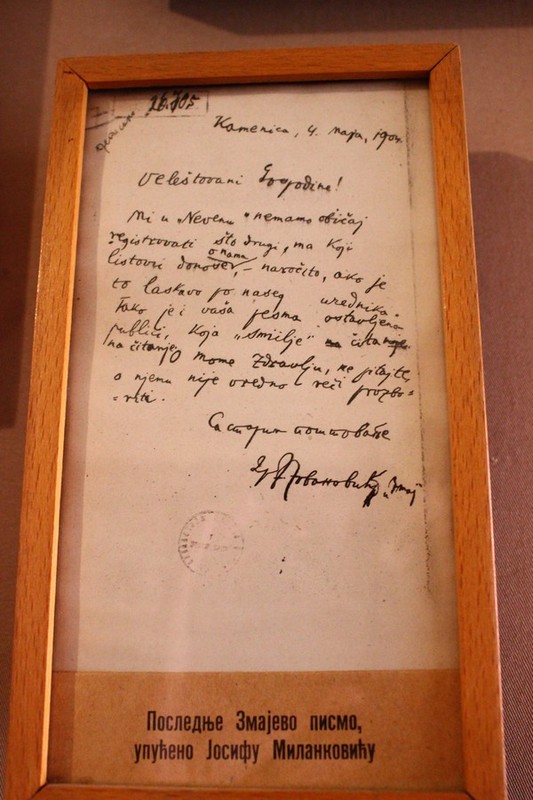 26.705
Kamenica, 4. maja, 1904.
Veleštovani Gospodine!
Mi u „Nevenu" nemamo običaj
registrovati što drugi, ma koji
o nama
listovi donose, – naročito, ako je
to laskavo po našeg urednika.
Tako je i vaša pesma ostavljena
publici, koja „smilje"
na čitanje mome zdravlju, ne pitajte,
o njemu nije vredno reči prozbo-
-riti.
Са старим поштовањем
Јовановић „Змај"
Последње Змајево писмо,
упућено Јосифу Миланковићу